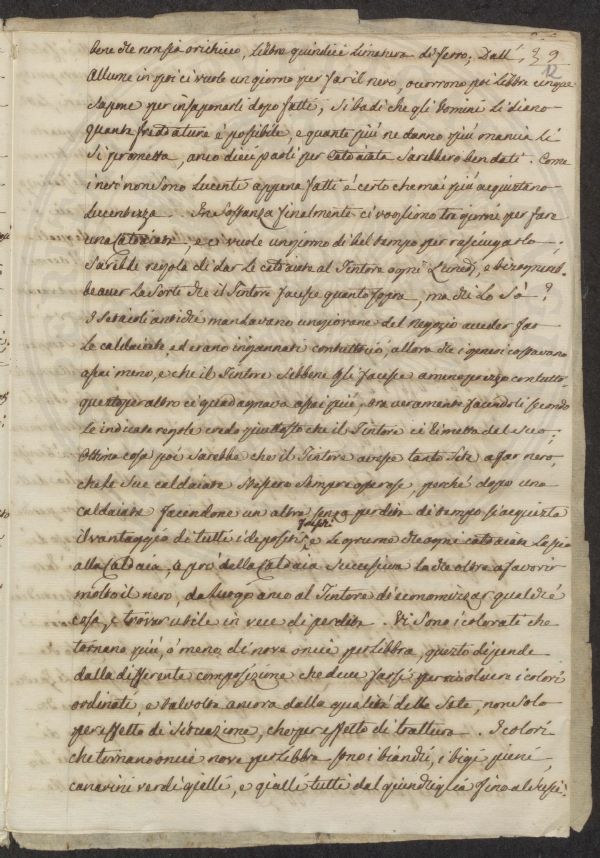 39
12
bene che non sia orichico, Libbre quindici Limatura di ferro; Dall'
Allume in poi ci vuole un giorno per far il nero, ocorrono poi Libbre cinque
Sapone per insaponarli dopo fatti; Si badi che gli Uomini Li diano
quante freddature è possibile, e quante più ne danno più mancia Li
Si prometta, anco dieci paoli per Caldaiata Sarebbero ben dati. Come
i neri non sono Lucenti appena fatti è certo che mai più acquistano
Lucentezza. In Sostanza finalmente ci vogliono tre giorni per fare
una Caldaiata, e ci vuole un giorno di bel tempo per rasciugarlo;
Sarebbe regola di dar le caldaiate al Tintore ogni Lunedì, e bisognereb:
be aver La Sorte che il Tintore facesse quanto sopra, ma chi Lo Sà?
I Setaioli antichi mandavano un giovene del negozio a veder far
Le caldaiate, ed erano ingannati con tutto ciò, allora che i generi costavano
assai meno, e che il Tintore Sebbene gli facesse a meno prezzo con tutto
questo per altro ci guadagnava assai più, Ora veramente facendoli secondo
Le indicate regole credo piuttosto che il Tintore ci rimetta del Suo;
Ottima cosa poi Sarebbe che il Tintore avesse tanta Seta a far nero,
che le Sue caldaiate Stassero Sempre operose, perché dopo una
caldaiata facendone un altra senza perdita di tempo si acquista
il vantaggio di tutti i depositi, fossi e Le grume che ogni caldaiata Lascia
alla Caldaia, a prò della Caldaia Successiva La che oltre a favorir
molto il nero, da Luogo anco al Tintore di economizzar qualche
cosa, e trovar utile in vece di perdita. Vi Sono i colorati che
tornano più, ò meno di nove oncie per Libbra, questo dipende
dalla differente composizione che deve farsi per risolvere i colori
ordinati, e talvolta ancora dalla qualità delle Sete, non solo
per effetto di Situazione, che per effetto di trattura. I colori
che tornano oncie nove per Libbra sono i bianchi, i bigi pieni,
canarini verdi gielli, e gialli tutti dal giunchiglia fino al